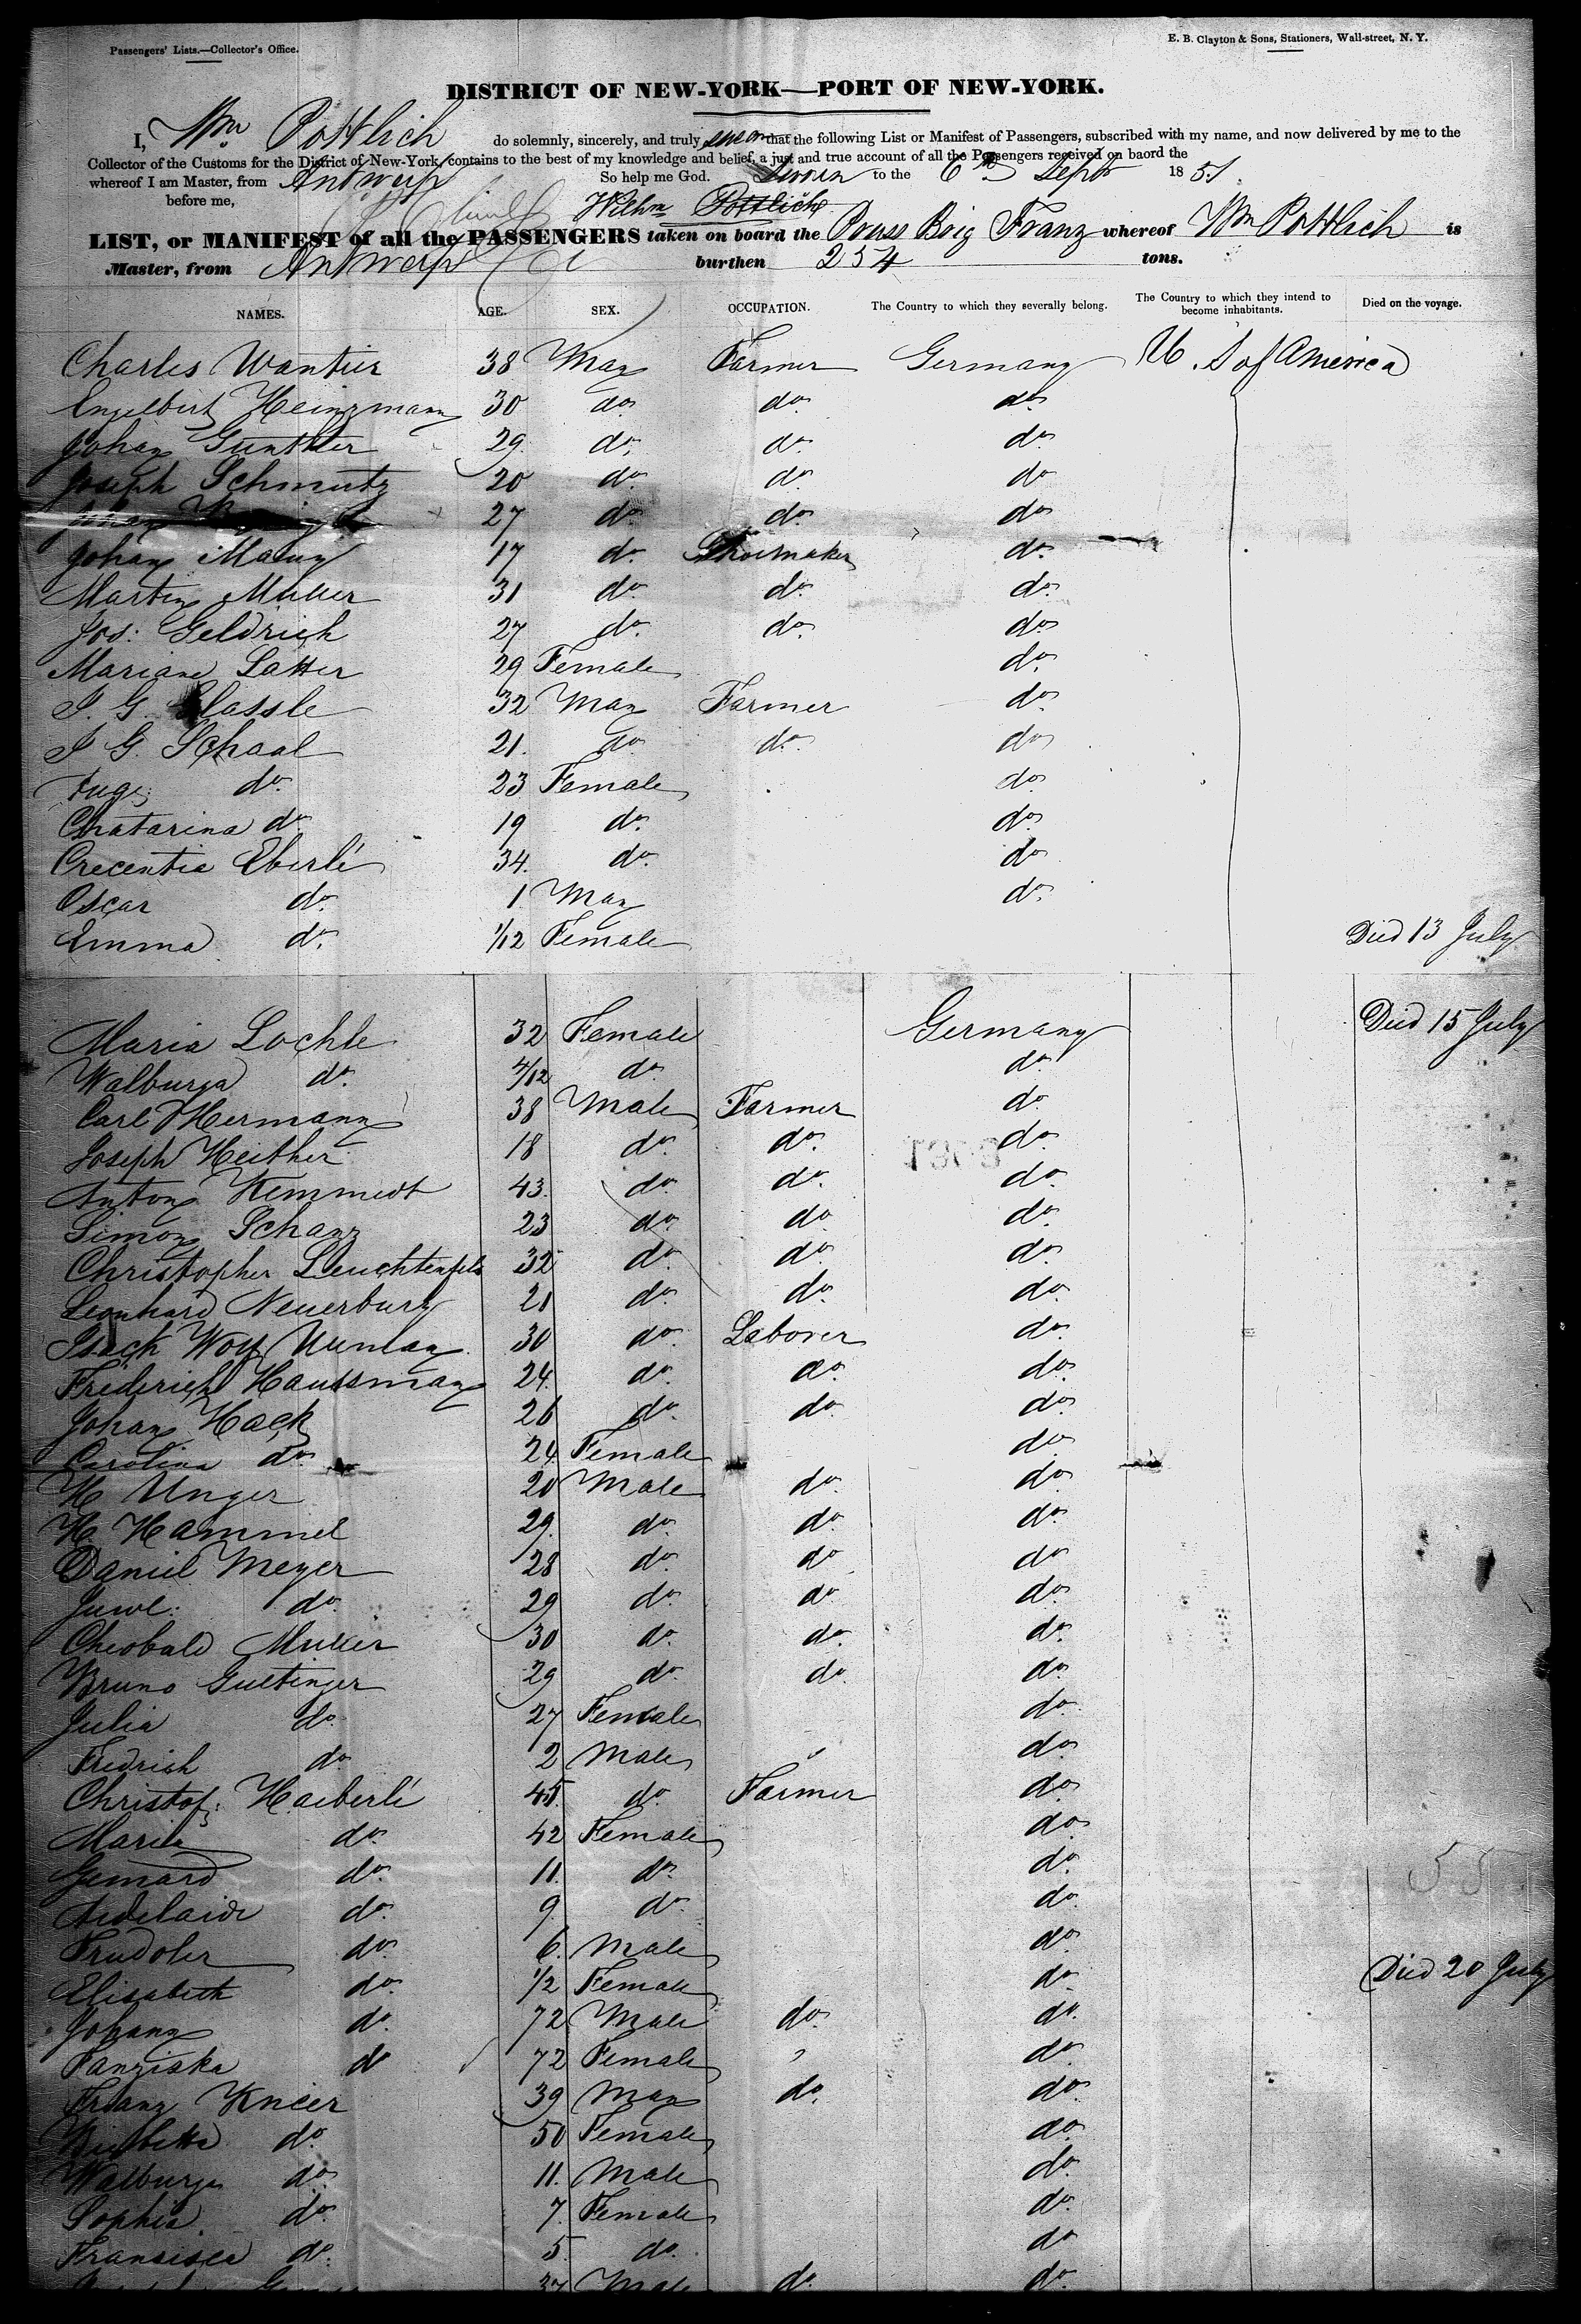 Passengers' Lists.—Collector's Office.
E. B. Clayton & Sons, Stationers, Wall-street, N. Y.
DISTRICT OF NEW-YORK—PORT OF NEW-YORK.
I, Wm. Pottlich do solemnly, sincerely, and truly swear that the following List or Manifest of Passengers, subscribed with my name, and now delivered by me to the
Collector of the Customs for the District of New-York, contains to the best of my knowledge and belief, a just and true account of all the Passengers received on baord the
whereof I am Master, from Antwerp So help me God. Sworn to the 6th Sept 1851.
before me, Wilhm Pottlich
LIST, or MANIFEST of all the PASSENGERS taken on board the Pruss Brig Franz whereof Wm Pottlich is
Master, from Antwerp burthen 254 tons.
NAMES. AGE. SEX. OCCUPATION. The Country to which they severally belong. The Country to which they intend to become inhabitants. Died on the voyage.
Charles Wantier 38 Man Farmer Germany U. S of America
Engelbert Heinzmann 30 do. do. do.
Johan Gunther 29. do. do. do.
Joseph Schmutz 20 do. do. do
Johan 27 do. do. do
Johan Mauny 17 do. Shoemaker do.
Martin Muller 31 do. do. do.
Jos: Geldrich 27 do. do. do.
Mariane Latter 29 Female do.
J. G. Glassle 32 Man Farmer do.
J G. Schaal 21. do do. do
do. 23 Female do.
Chatarina do. 19 do. do.
Crecentia Eberlé 34. do. do.
Oscar do. 1 Man do.
Emma do. 1/12 Female Died 13 July
Maria Lochle 32 Female Germany Died 15 July
Walburga do. 4/12 do. do.
Carl Hermann 38 Male Farmer do.
Joseph Heither 18 do. do. do.
Anton Kemmedt 43. do. do. do.
Simon Schanz 23 do. do. do.
Christopher Leuchtenfels 32 do. do. do.
Leonhard Neuerburg 21 do. do. do.
Isack Wolf 30 do. Laborer do.
Frederich Haussmann 24. do. do. do.
Johan Hack 26 do. do. do.
Carolina do. 24 Female do.
H Unger 20 Male do. do.
H Hammel 29. do. do. do.
Daniel Meyer 28 do. do do
do. 29 do. do do.
Theobald Muller 30 do. do. do.
Bruno Guttinger 29 do. do. do.
Julia do. 27 Female do.
Fredrich do. 2 Male do.
Christof: Haeberlé 45. do. Farmer do.
Maria do. 42 Female do.
do. 11. do. do.
Adelaide do. 9. do. do.
do. 6. Male do.
Elisabeth do. 1/2 Female do. Died 20 July
Johann do. 72. Male do. do.
Fanziska do 72 Female do.
Franz Knier 39 Man do. do.
do. 50 Female do.
Walburga do. 11. Male do.
Sophia do. 7. Female do.
Francisca do. 5. do. do
37 Male do. do.